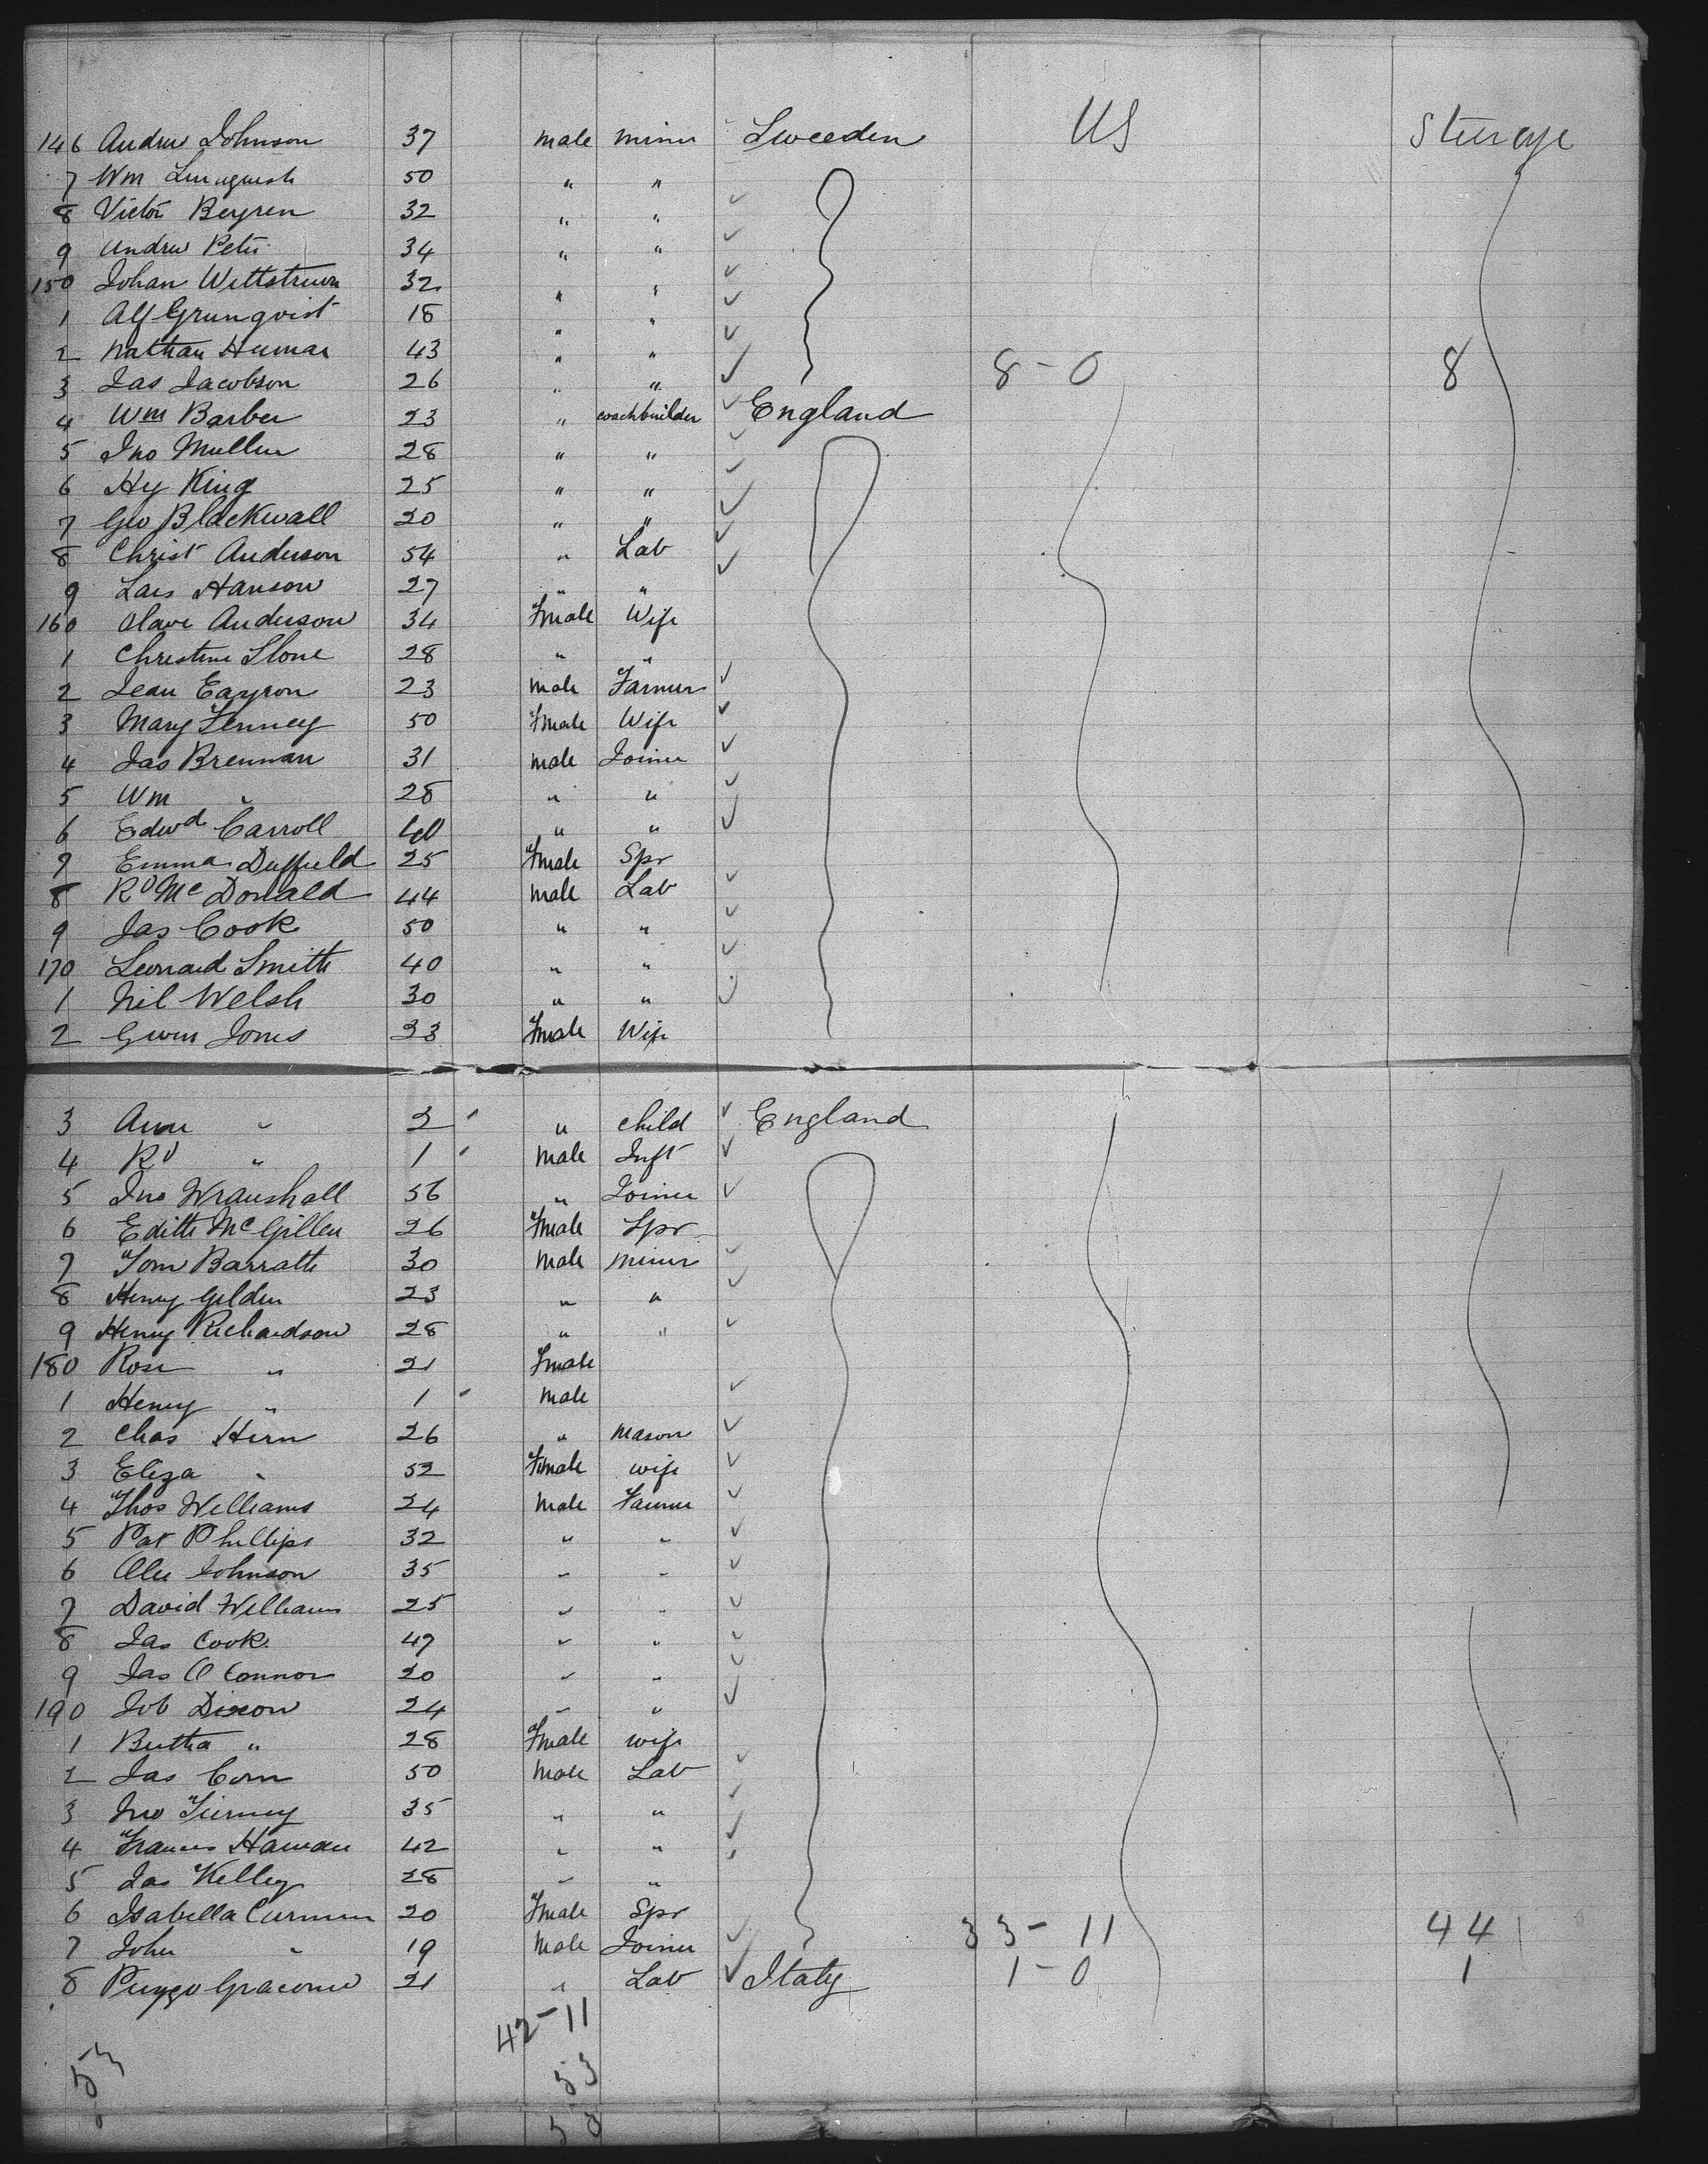 146 Andrew Johnson 37 male miner Sweeden US Steerage
7 Wm 50 " "
8 Victor Beyren 32 " "
9 Andrew Peter 34 " "
150 Johan 32 " "
1 Alf Grunqvist 18 " "
2 Nathan 43 " " 8-0 8
3 Jas Jacobson 26 " "
4 Wm Barber 23 " coachbuilder England
5 Jno Mullen 28 " "
6 Hy King 25 " "
7 Geo Blackwall 20 " "
8 Christ Anderson 54 " Lab
9 Lars Hanson 27 " "
160 Anderson 34 Fmale Wife
1 Christine Stone 28 " "
2 Jean 23 male Farmer
3 Mary Fenney 50 Fmale Wife
4 Jas Brennan 31 male Joiner
5 Wm " 28 " "
6 Edwd Carroll 40 " "
7 Emma Duffield 25 Fmale Spr
8 Rd McDonald 44 male Lab
9 Jas Cook 50 " "
170 Leonard Smith 40 " "
1 Nil Welsh 30 " "
2 Gwen Jones 33 Fmale Wife
3 Ann " 3 " child England
4 Rd " 1 male Inft
5 Jno Wraushall 56 " Joiner
6 Edith McGillen 26 Fmale Spr
7 Tom Barratt 30 male miner
8 Henry Gelden 23 " "
9 Henry Richardson 28 " "
180 Rose " 21 Fmale
1 Henry " 1 male
2 Chas Hirn 26 " mason
3 Eliza " 52 Female wife
4 Thos Williams 24 male Farmer
5 Pat Phillips 32 " "
6 Johnson 35 " "
7 David Williams 25 " "
8 Jas Cook 47 " "
9 Jas O'Connor 20 " "
190 Job Dixon 24 " "
1 Bertha " 28 Fmale wife
2 Jas Corn 50 male Lab
3 Jno Tierney 35 " "
4 Frances 42 " "
5 Jas Kelley 28 " "
6 Isabella 20 Fmale Spr
7 John " 19 male Joiner 33-11 44
8 21 " Lab Italy 1-0 1
42-11
53
53
53